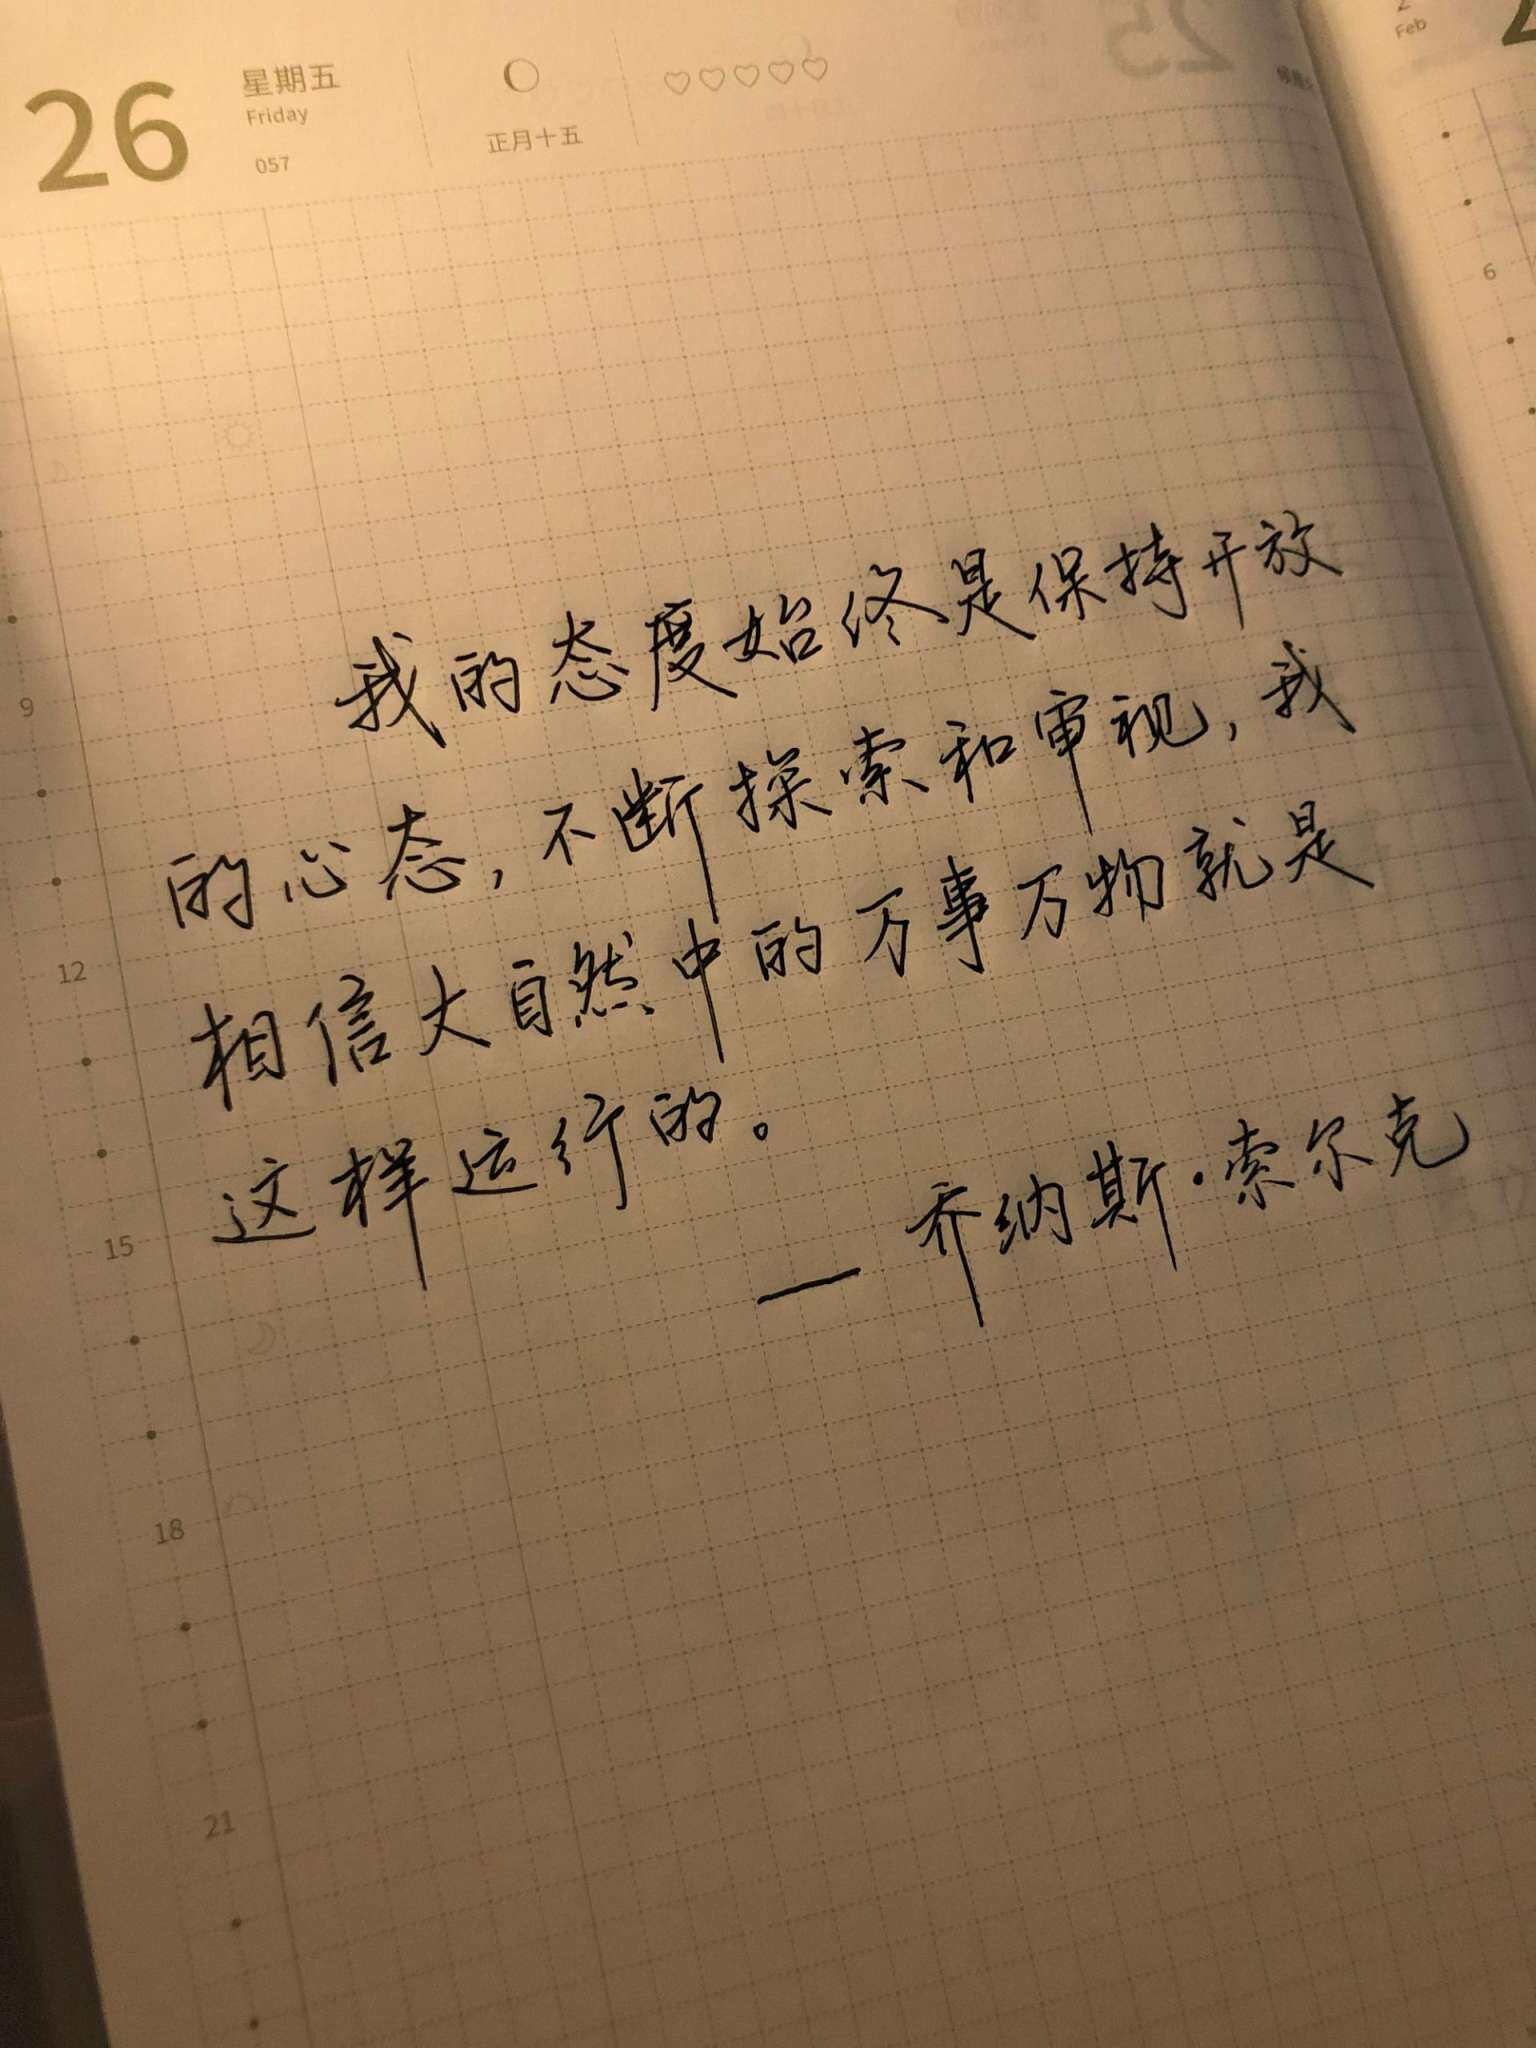 26
星期五
Friday
057
正月十五
Feb
6
9
12
15
18
21
我的态度始终是保持开放
的心态，不断探索和审视，我
相信大自然中的万事万物就是
这样运行的。
— 乔纳斯·索尔克